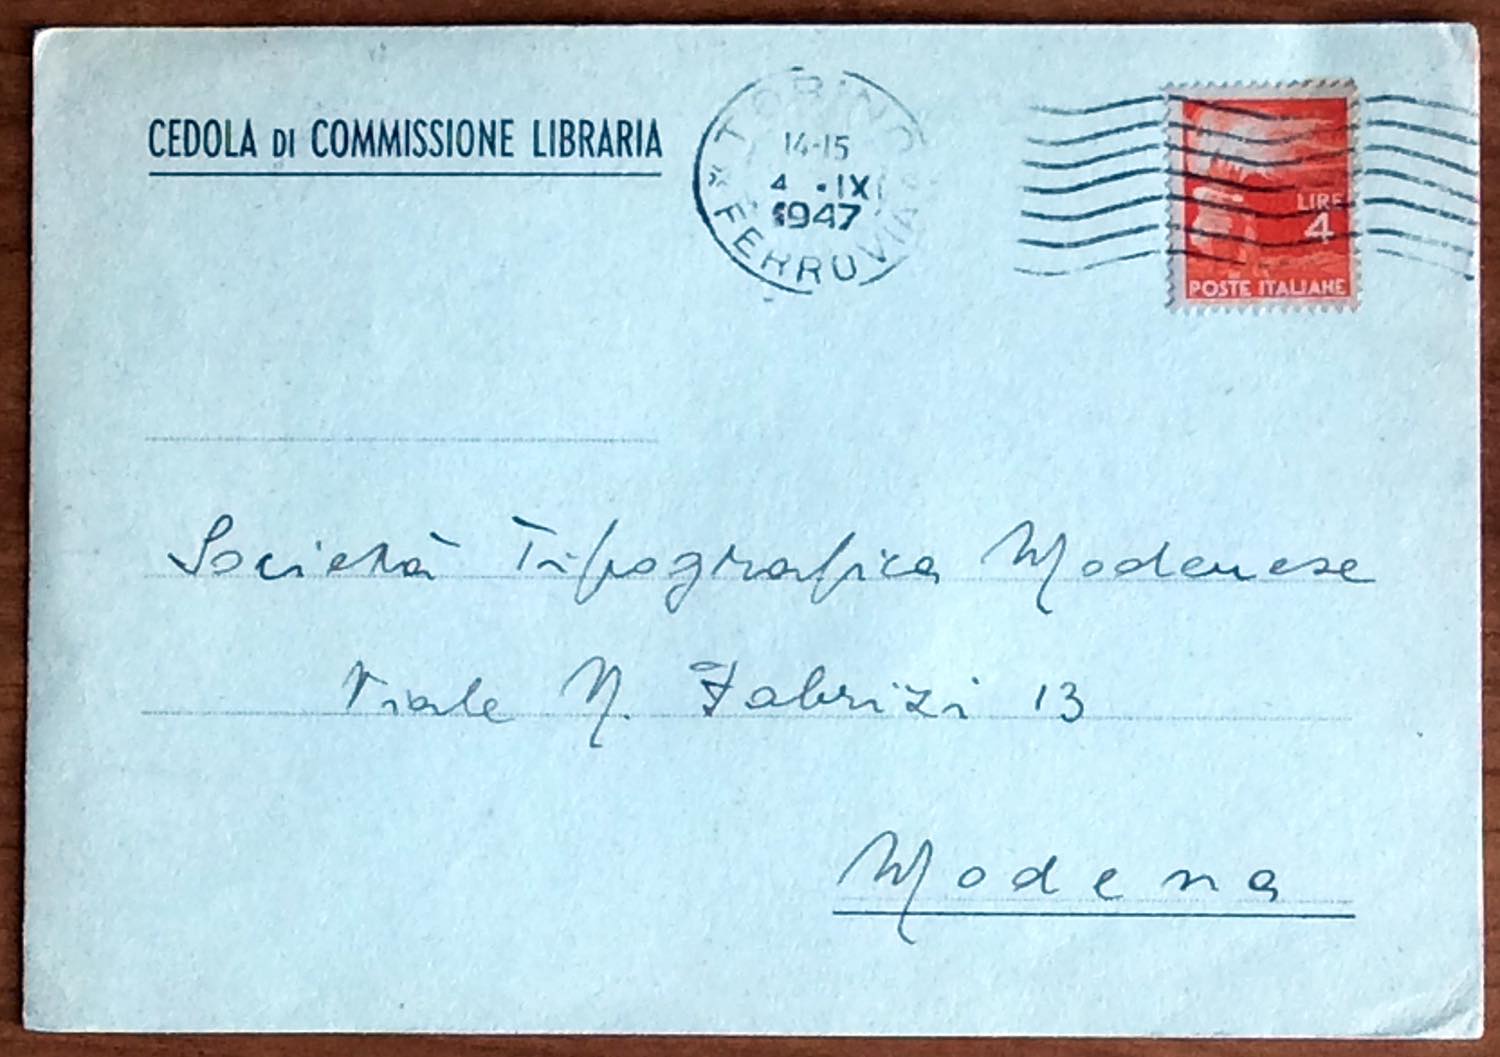 CEDOLA DI COMMISSIONE LIBRARIA
TORINO
14-15
4 . IX
1947
FERROVIA
LIRE
4
POSTE ITALIANE
Società Tipografica Modenese
Viale N. Fabrizi 13
Modena